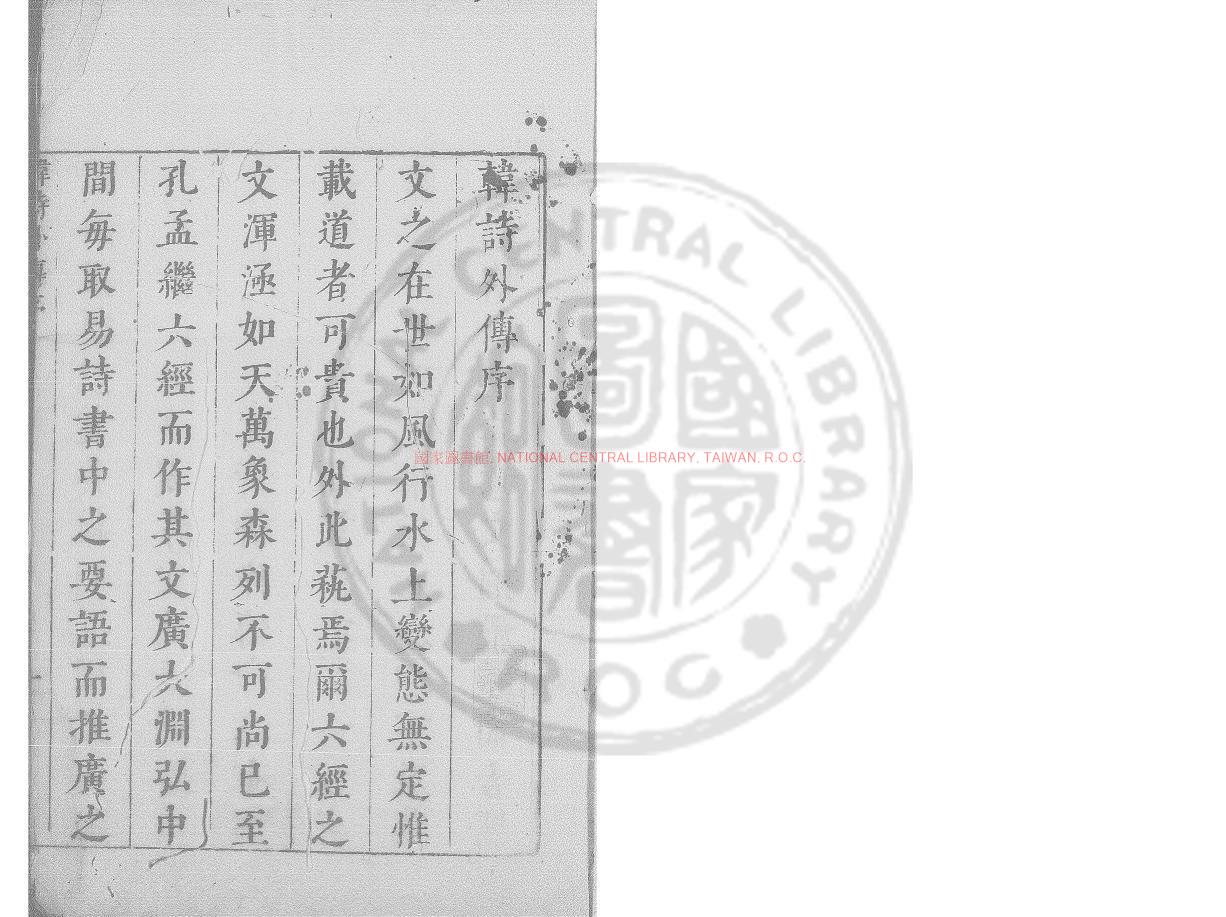 韓詩外傳序
文之在世如風行水上變態無定惟
載道者可貴也外此蓺焉爾六經之
文渾涵如天萬象森列不可尚已至
孔孟繼六經而作其文廣大淵弘中
間每取易詩書中之要語而推廣之
韓詩外傳序
國家圖書館
國家圖書館, NATIONAL CENTRAL LIBRARY, TAIWAN, R.O.C.
NATIONAL CENTRAL LIBRARY
R O C